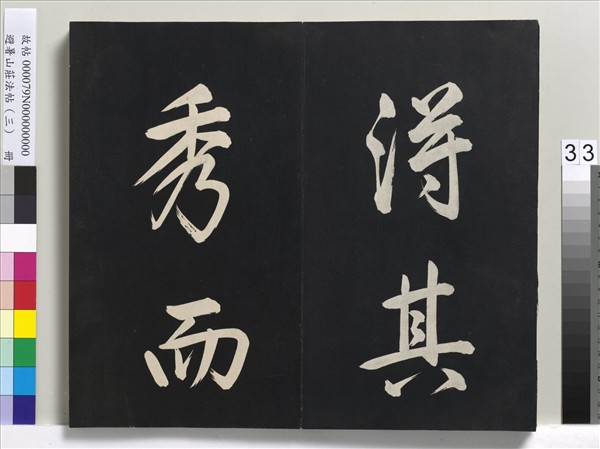 得其
秀而
故帖 000079N000000000
避暑山莊法帖（三） 冊
33